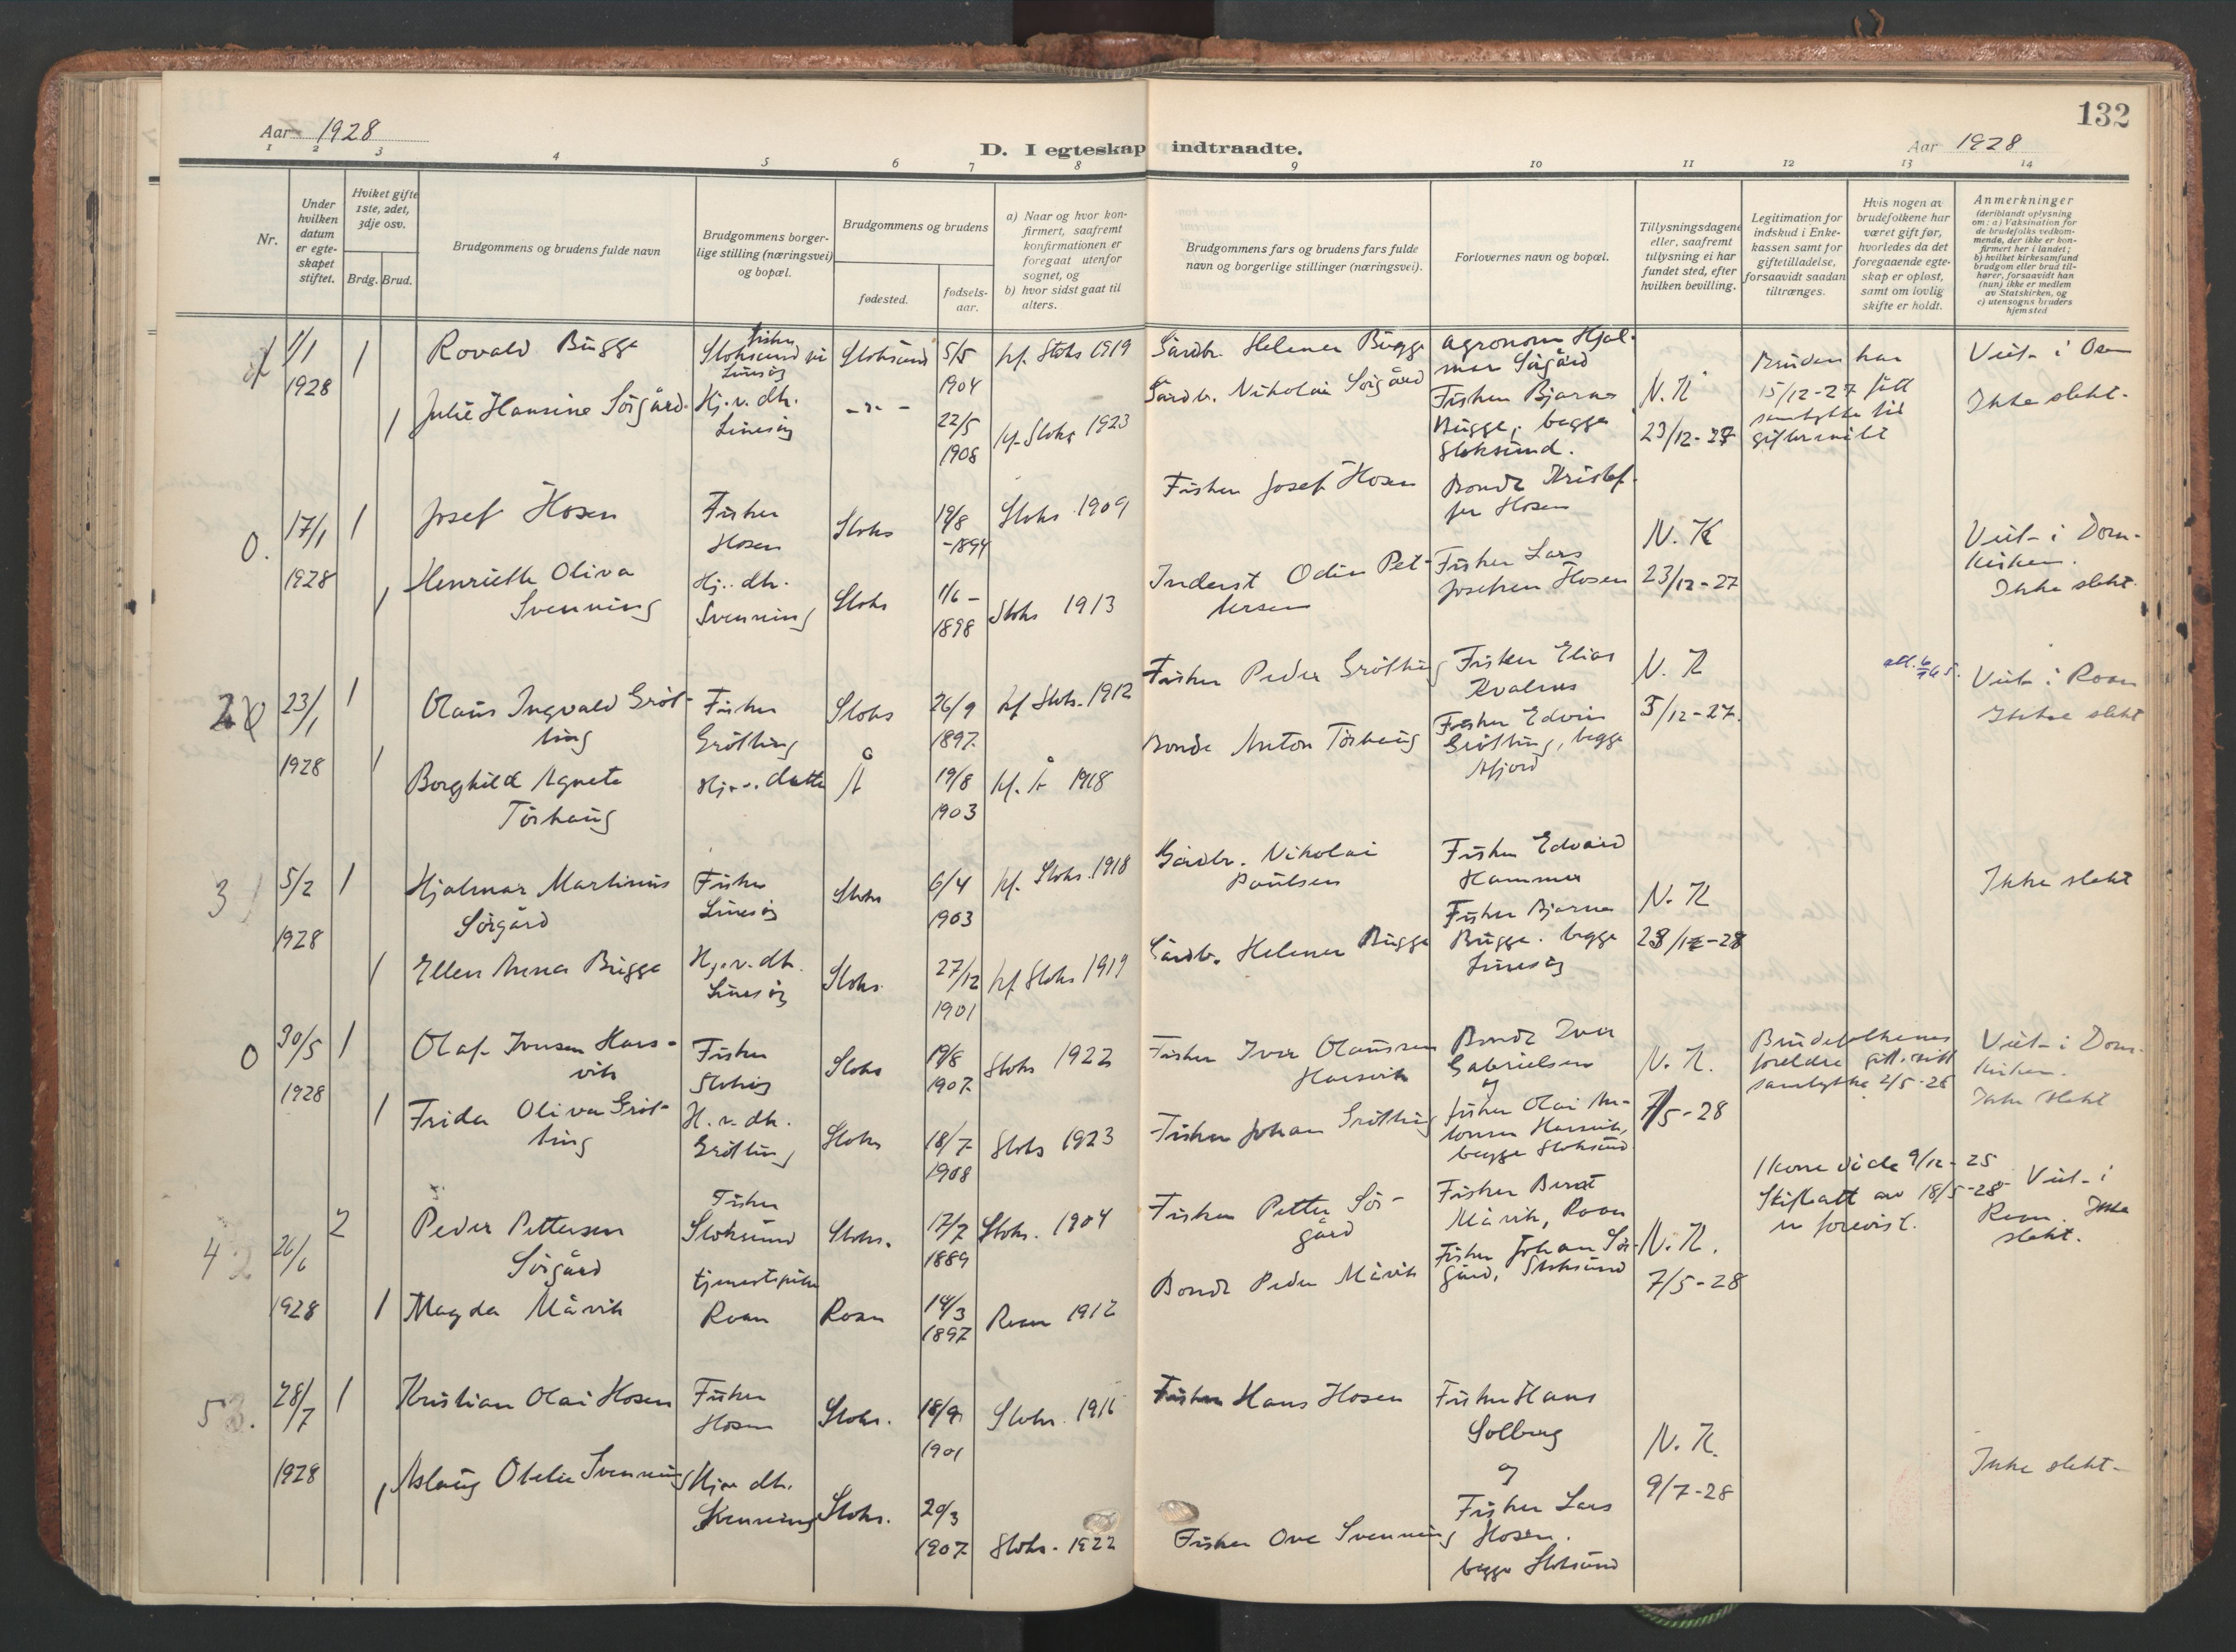 132
Aar 1928
D. I egteskap indtraadte.
Aar 1928
1 2 3 4 5 6 7 8 9 10 11 12 13 14
Nr.
Under hvilken datum er egteskapet stiftet.
Hviket gifte 1ste, 2det, 3dje osv.
Brdg. Brud.
Brudgommens og brudens fulde navn
Brudgommens borgerlige stilling (næringsvei) og bopæl.
Brudgommens og brudens
fødested.
fødselsaar.
a) Naar og hvor konfirmert, saafremt konfirmationen er foregaat utenfor sognet, og
b) hvor sidst gaat til alters.
Brudgommens fars og brudens fars fulde navn og borgerlige stillinger (næringsvei).
Forlovernes navn og bopæl.
Tillysningsdagene eller, saafremt tillysning ei har fundet sted, efter hvilken bevilling.
Legitimation for indskud i Enkekassen samt for giftetilladelse, forsaavidt saadan tiltrænges.
Hvis nogen av brudefolkene har været gift før, hvorledes da det foregaaende egteskap er opløst, samt om lovlig skifte er holdt.
Anmerkninger
(deriblandt oplysning om: a) Vaksination for de brudefolks vedkommende, der ikke er konfirmert her i landet; b) hvilket kirkesamfund brudgom eller brud tilhører, forsaavidt han (hun) ikke er medlem av Statskirken, og c) utensogns bruders hjemsted
1/1 1928 1 Rovald Bugge Fisker Stoksund Linesøy Stoksund 5/5 1904 kf. Stoks 1919 Gårdbr. Helmer Bugge Agronom Hjalmar Sørgård
1 Julie Hansine Sørgård Hj.v. dtr. Linesøy -"- 22/5 1908 kf. Stoks 1923 Gårdbr. Nikolai Sørgård Fisker Bjarne Bugge, begge Stoksund.
N. K 23/12-27
Bruden har 15/12-27 fått samtykke til giftermålet
Viet i Osen
Ikke slekt.
0. 17/1 1928 1 Josef Hosen Fisker Hosen Stoks 19/8 -1894 Stoks 1909 Fisker Josef Hosen Bonde Kristoffer Hosen
1 Henriette Oliva Svenning Hj.. dtr. Svenning Stoks 1/6 - 1898 Stoks 1913 Inderst Odin Pettersen Fisker Lars Josefsen Hosen
N. K 23/12-27
Viet i Domkirken.
Ikke slekt.
2 23/1 1928 1 Olaus Ingvald Grøtting Fisker Grøtting Stoks 26/9 1897. kf Stoks. 1912 Fisker Peder Grøtting Fisker Elias Kvalnes
1 Borghild Agnete Tørhaug Hj.v. datter Å 19/8 1903 kf. Å 1918 Bonde Anton Tørhaug Fisker Edvin Grøtting, begge Åfjord
N. K 5/12-27.
Viet i Roan
Ikke slekt
3 5/2 1928 1 Hjalmar Martinus Sørgård Fisker Linesøy Stoks 6/4 1903 kf. Stoks. 1918 Gårdbr. Nikolai Paulsen Fisker Edvard Hammer
1 Ellen Anna Bugge Hj.v. dtr. Linesøy Stoks. 27/12 1901 kf Stoks 1919 Gårdbr. Helmer Bugge Fisker Bjarne Bugge. begge Linesøy
N. K
Ikke slekt
0 30/5 1928 1 Olaf Iversen Harsvik Fisker Stokøy Stoks 19/8 1907. Stoks 1922 Fisker Iver Olaussen Harsvik Bonde Iver Gabrielsen
og
1 Frida Oliva Grøtting H.v. dtr. Grøtting Stoks 18/7 1908 Stoks 1923 Fisker Johan Grøtting Fisker Olai Antonsen Harsvik, begge Stoksund
N. K. 7/5-28
Brudefolkenes foreldre gitt samtykke 2/5-28
Viet i Domkirken.
Ikke slekt
4 26/6 1928 2 Peder Pettersen Sørgård Fisker Stoksund Stoks. 17/7 1889 Stoks. 1904 Fisker Petter Sørgård Fisker Berat Måvik, Roan
1 Magda Måvik tjenestepike Roan Roan 14/3 1897 Roan 1912 Bonde Peder Måvik Fisker Johan Sørgård, Stoksund
N. K. 7/5-28
1 kone døde 9/12-25
Skifteatt av 18/5-28 er forevist.
Viet i Roan. Ikke slekt.
5 28/7 1928 1 Kristian Olai Hosen Fisker Hosen Stoks. 18/9 1901 Stoks. 1916 Fisker Hans Hosen Fisker Hans Solberg
og
1 Aslaug Otelie Svenning Hjv. dtr. Svenning Stoks. 20/3 1907. Stoks. 1922 Fisker Ove Svenning Fisker Lars Hosen. begge Stoksund
N. K. 9/7-28
Ikke slekt